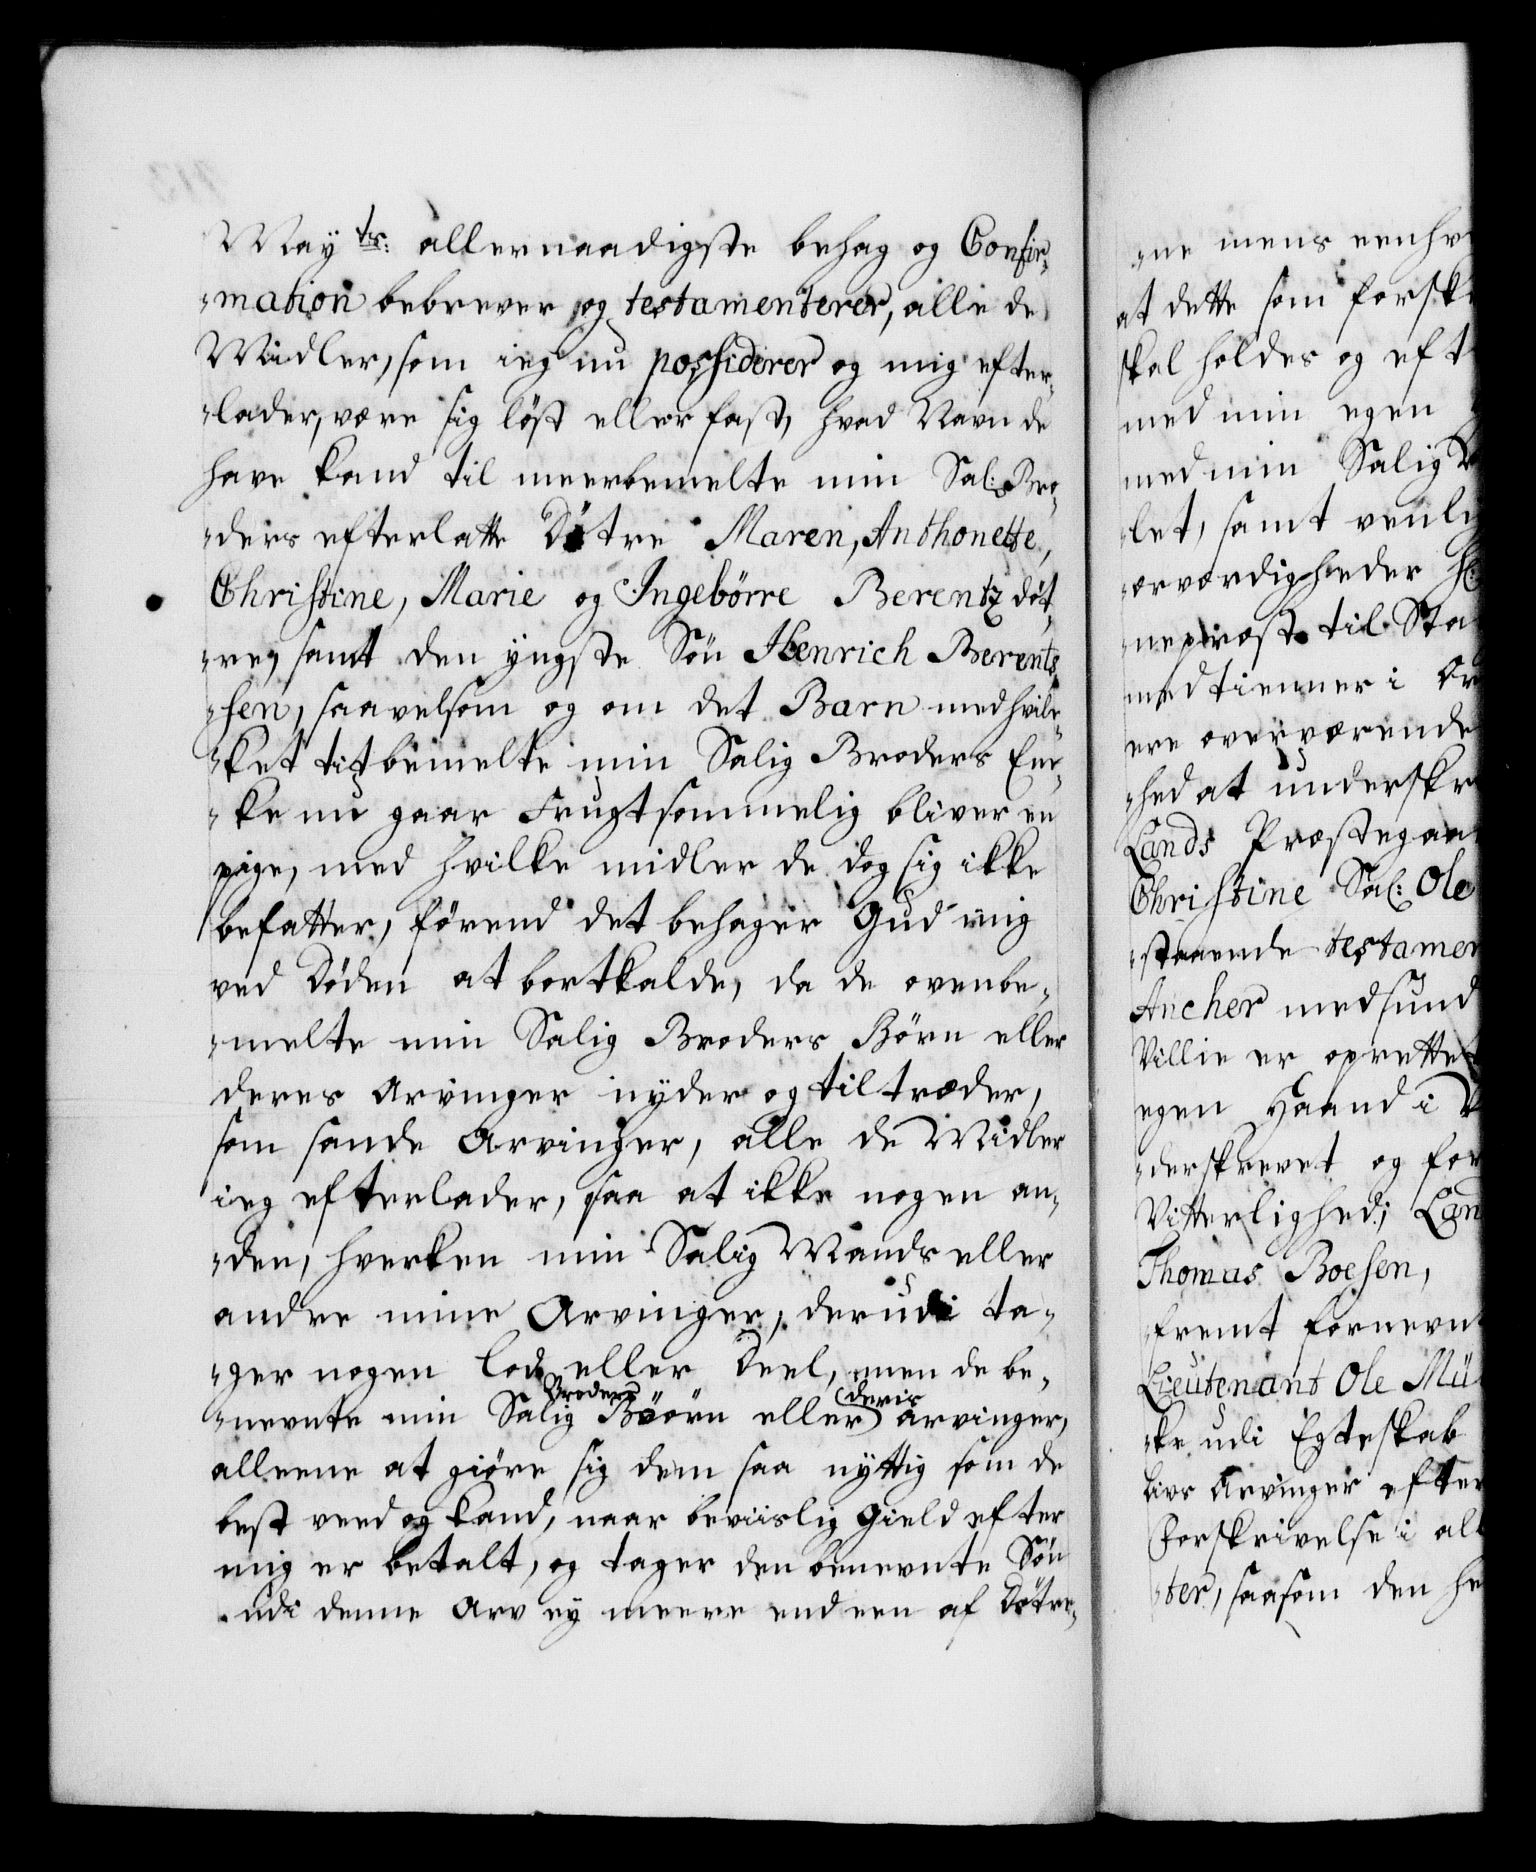 May ts: allernaadigste behag og Confir-
-mation bebrever og testamenterer, alle de
Midler, som ieg nu possiderer og mig efter-
-lader, være sig løst eller fast, hvad Navn de
have kand til meerbemelte min Sal: Bro-
-ders efterlatte Døtre Maren, Anthonette,
Christine, Marie og Ingebørre Berentz døt-
-re, samt den yngste Søn Henrich Berent-
-sen, saavelsom og om det Barn med hvil-
-ket titbemelte min Salig Broders En-
-ke nu gaar Frugtsommelig bliver en
pige, med hvilke midler de dog sig ikke
befatter, førend det behager Gud mig
ved Døden at bortkalde, da de ovenbe-
-melte min Salig Broders Børn eller
deres Arvinger nyder og tiltræder,
som sande Arvinger, alle de Midler
ieg efterlader, saa at ikke nogen an-
-den, hverken min Salig Mands eller
andre mine Arvinger, derudi ta-
-ger nogen lod eller Deel, men de be-
-nevnte min Salig Broders Børn eller deris arvinger,
alleene at giøre sig dem saa nyttig som de
best veed og kand, naar beviislig Gield efter
mig er betalt, og tager den benevnte Søn
udi denne Arv ey meere end een af Døtre-
-ne mens eenhv
at dette som forsk
skal holdes og eft
med min egen
med min Salig
-let, samt venli
-ærværdigheder H:
-neprost til Sta
medtienner i
ere overværende
-hed at underskr
Lands Præstegaa
Christine Sal: Ole
-staaende testamen
Ancher med sund
Villie er oprettet
egen Haand i
-derskrevet og for
Vitterlighed; Lan
Thomas Boesen,
-fremt fornevnt
Lieutenant Ole Mü
-ke udi Egteskab
livs Arvinger efter
Forskrivelse i al
-ter, saasom den he